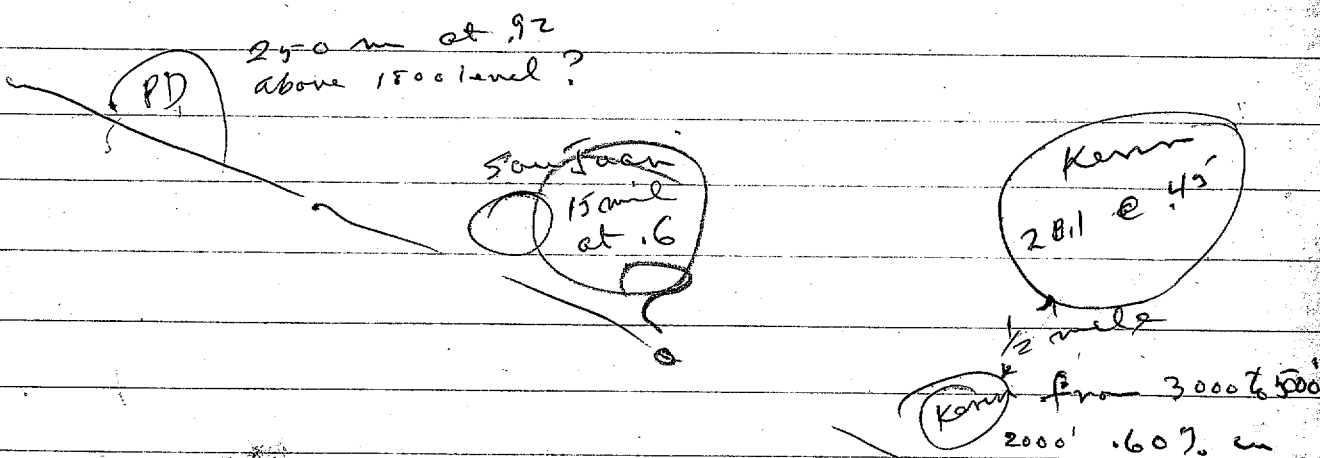 250 m at .92
above 1500 level ?
PD
San Juan
15 mil
at .6
Kenn
2 Bil @ .45
1/2 mile
Kenn from 3000 to 5000'
2000' .60% cu